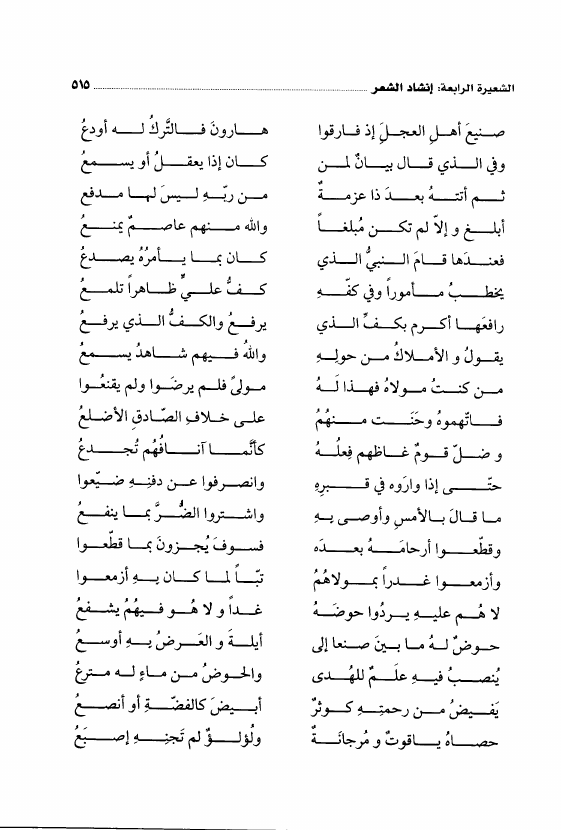 الشعيرة الرابعة: إنشاد الشعر ........ ٥١٥
صنيعَ أهلِ العجلِ إذ فارقوا هارونَ فالتَّركُ له أودعُ
وفي الذي قال بيانٌ لمن كان إذا يعقلُ أو يسمعُ
ثم أتتهُ بعدَ ذا عزمةٌ من ربّهِ ليسَ لها مدفعُ
أبلغ و إلاّ لم تكن مُبلغاً والله منهم عاصمٌ يمنعُ
فعندَها قامَ النبيُّ الذي كان بما يأمرُهُ يصدعُ
يخطبُ مأموراً وفي كفّهِ كفُّ عليٍّ ظاهراً تلمعُ
رافعَها أكرم بكفِّ الذي يرفعُ والكفُّ الذي يرفعُ
يقولُ و الأملاكُ من حولِهِ واللهُ فيهم شاهدُ يسمعُ
من كنتُ مولاهُ فهذا لَهُ مولىً فلم يرضَوا ولم يقنعُوا
فاتّهموهُ وحَنَت منهُمُ على خلافِ الصّادقِ الأضلعُ
و ضلّ قومٌ غاظهم فِعلُهُ كأنّما آنافُهُم تُجدعُ
حتّى إذا وارَوه في قبرِهِ وانصرفوا عن دفنِهِ ضيّعوا
ما قالَ بالأمسِ وأوصى بهِ واشتروا الضُّرَّ بما ينفعُ
وقطّعوا أرحامَهُ بعدَه فسوفَ يُجزونَ بما قطّعوا
وأزمعوا غدراً بمولاهُمُ تبّاً لما كان به أزمعوا
لا هُم عليهِ يردُوا حوضَهُ غداً و لا هُو فيهُم يشفعُ
حوضٌ لهُ ما بينَ صنعا إلى أيلةَ و العَرضُ بهِ أوسعُ
يُنصبُ فيهِ علَمٌ للهُدى والحوضُ من ماءٍ له مترعُ
يَفيضُ من رحمتِهِ كوثرٌ أبيضَ كالفضّةِ أو أنصعُ
حصاهُ ياقوتٌ و مُرجانَةٌ ولُؤلؤٌ لم تَجنِهِ إصبَعُ